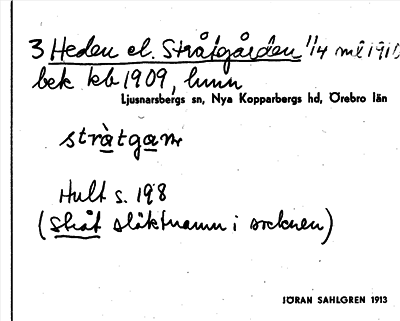 3 Heden el. Stråtgården 1/4 ml 1910
bek kb 1909,
Ljusnarsbergs sn, Nya Kopparbergs hd, Örebro län
Hult s. 198
(Stråt släktnamn i socknen)
JÖRAN SAHLGREN 1913